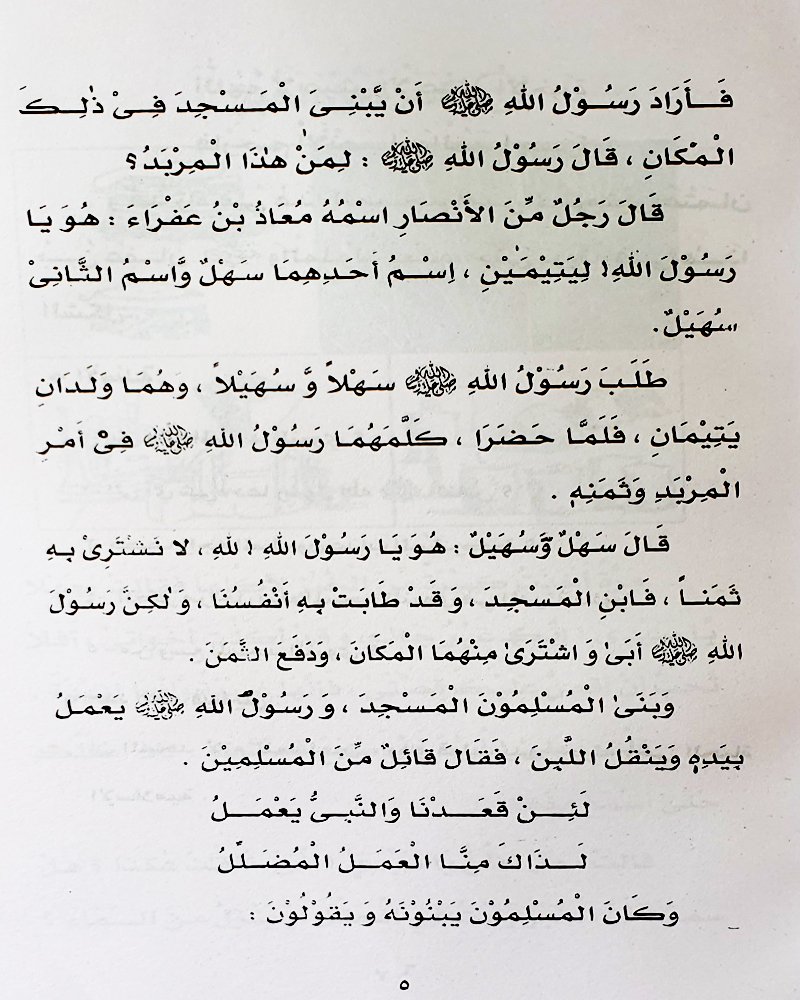 فَأَرَادَ رَسُوْلُ اللهِ ﷺ أَنْ يَّبْنِىَ الْمَسْجِدَ فِىْ ذٰلِكَ
الْمَكَانِ ، قَالَ رَسُوْلُ اللهِ ﷺ : لِمَنْ هٰذَا الْمِرْبَدُ؟
قَالَ رَجُلٌ مِّنَ الأَنْصَارِ اسْمُهُ مُعَاذُ بْنُ عَفْرَاءَ : هُوَ يَا
رَسُوْلَ اللهِ! لِيَتِيْمَيْنِ ، اِسْمُ أَحَدِهِمَا سَهْلٌ وَّاسْمُ الثَّانِىْ
سُهَيْلٌ.
طَلَبَ رَسُوْلُ اللهِ ﷺ سَهْلاً وَّ سُهَيْلاً ، وَهُمَا وَلَدَانِ
يَتِيْمَانِ ، فَلَمَّا حَضَرَا ، كَلَّمَهُمَا رَسُوْلُ اللهِ ﷺ فِىْ أَمْرِ
الْمِرْبَدِ وَثَمَنِهِ .
قَالَ سَهْلٌ وَّسُهَيْلٌ : هُوَ يَا رَسُوْلَ اللهِ ! لِلهِ ، لاَ نَشْتَرِىْ بِهِ
ثَمَناً ، فَابْنِ الْمَسْجِدَ ، وَ قَدْ طَابَتْ بِهِ أَنْفُسُنَا ، وَ لٰكِنَّ رَسُوْلَ
اللهِ ﷺ أَبَىٰ وَ اشْتَرَىٰ مِنْهُمَا الْمَكَانَ ، وَدَفَعَ الثَّمَنَ .
وَبَنَىٰ الْمُسْلِمُوْنَ الْمَسْجِدَ ، وَ رَسُوْلُ اللهِ ﷺ يَعْمَلُ
بِيَدِهِ وَيَنْقُلُ اللَّبِنَ ، فَقَالَ قَائِلٌ مِّنَ الْمُسْلِمِيْنَ .
لَئِنْ قَعَدْنَا وَالنَّبِىُّ يَعْمَلُ
لَذَاكَ مِنَّا الْعَمَلُ الْمُضَلَّلُ
وَكَانَ الْمُسْلِمُوْنَ يَبْنُوْنَهُ وَ يَقُوْلُوْنَ :
٥